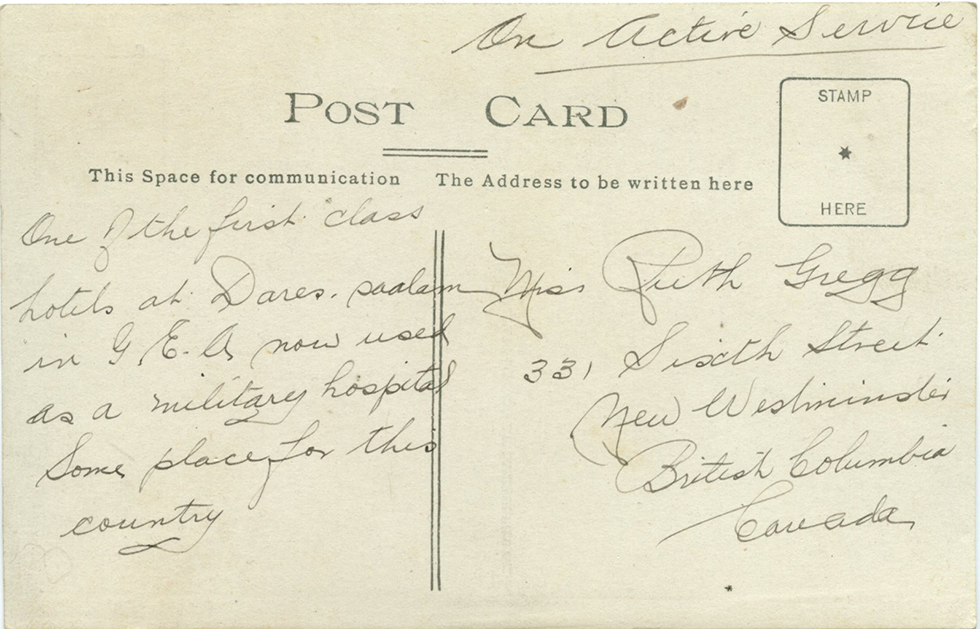 On Active Service
POST CARD
STAMP
HERE
This Space for communication
The Address to be written here
One of the first class
hotels at Dares. saalam
in G. E. A now used
as a military hospital
Some place for this
country
Miss Ruth Gregg
331 Sixth Street
New Westminster
British Columbia
Canada